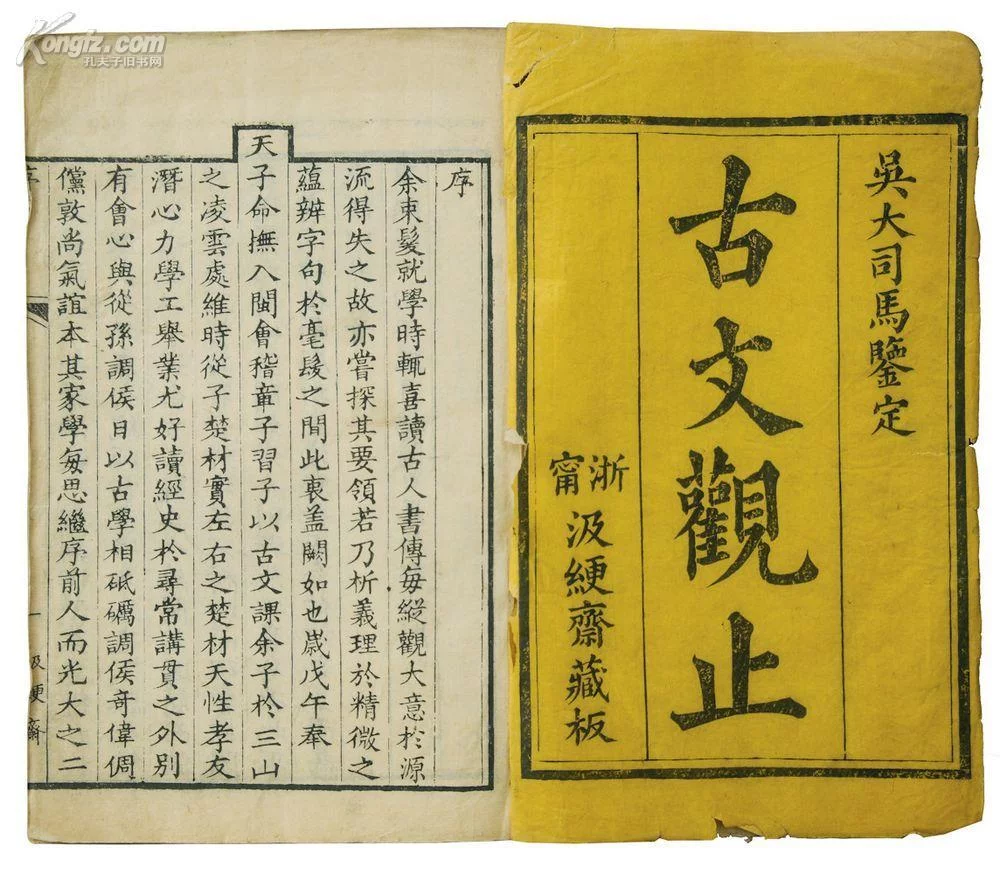 Kongfz.com
孔夫子旧书网
吳大司馬鑒定
古文觀止
浙甯
汲綆齋藏板
序
余束髮就學時輒喜讀古人書傳每縱觀大意於源
流得失之故亦嘗探其要領若乃析義理於精微之
蘊辨字句於毫髮之間此衷盖闕如也歲戊午奉
天子命撫入閩會稽章子習子以古文課余子於三山
之凌雲處維時從子楚材實左右之楚材天性孝友
潛心力學工舉業尤好讀經史於尋常講貫之外別
有會心與從孫調侯日以古學相砥礪調侯奇偉倜
儻敦尚氣誼本其家學每思繼序前人而光大之二
序
一
汲綆齋